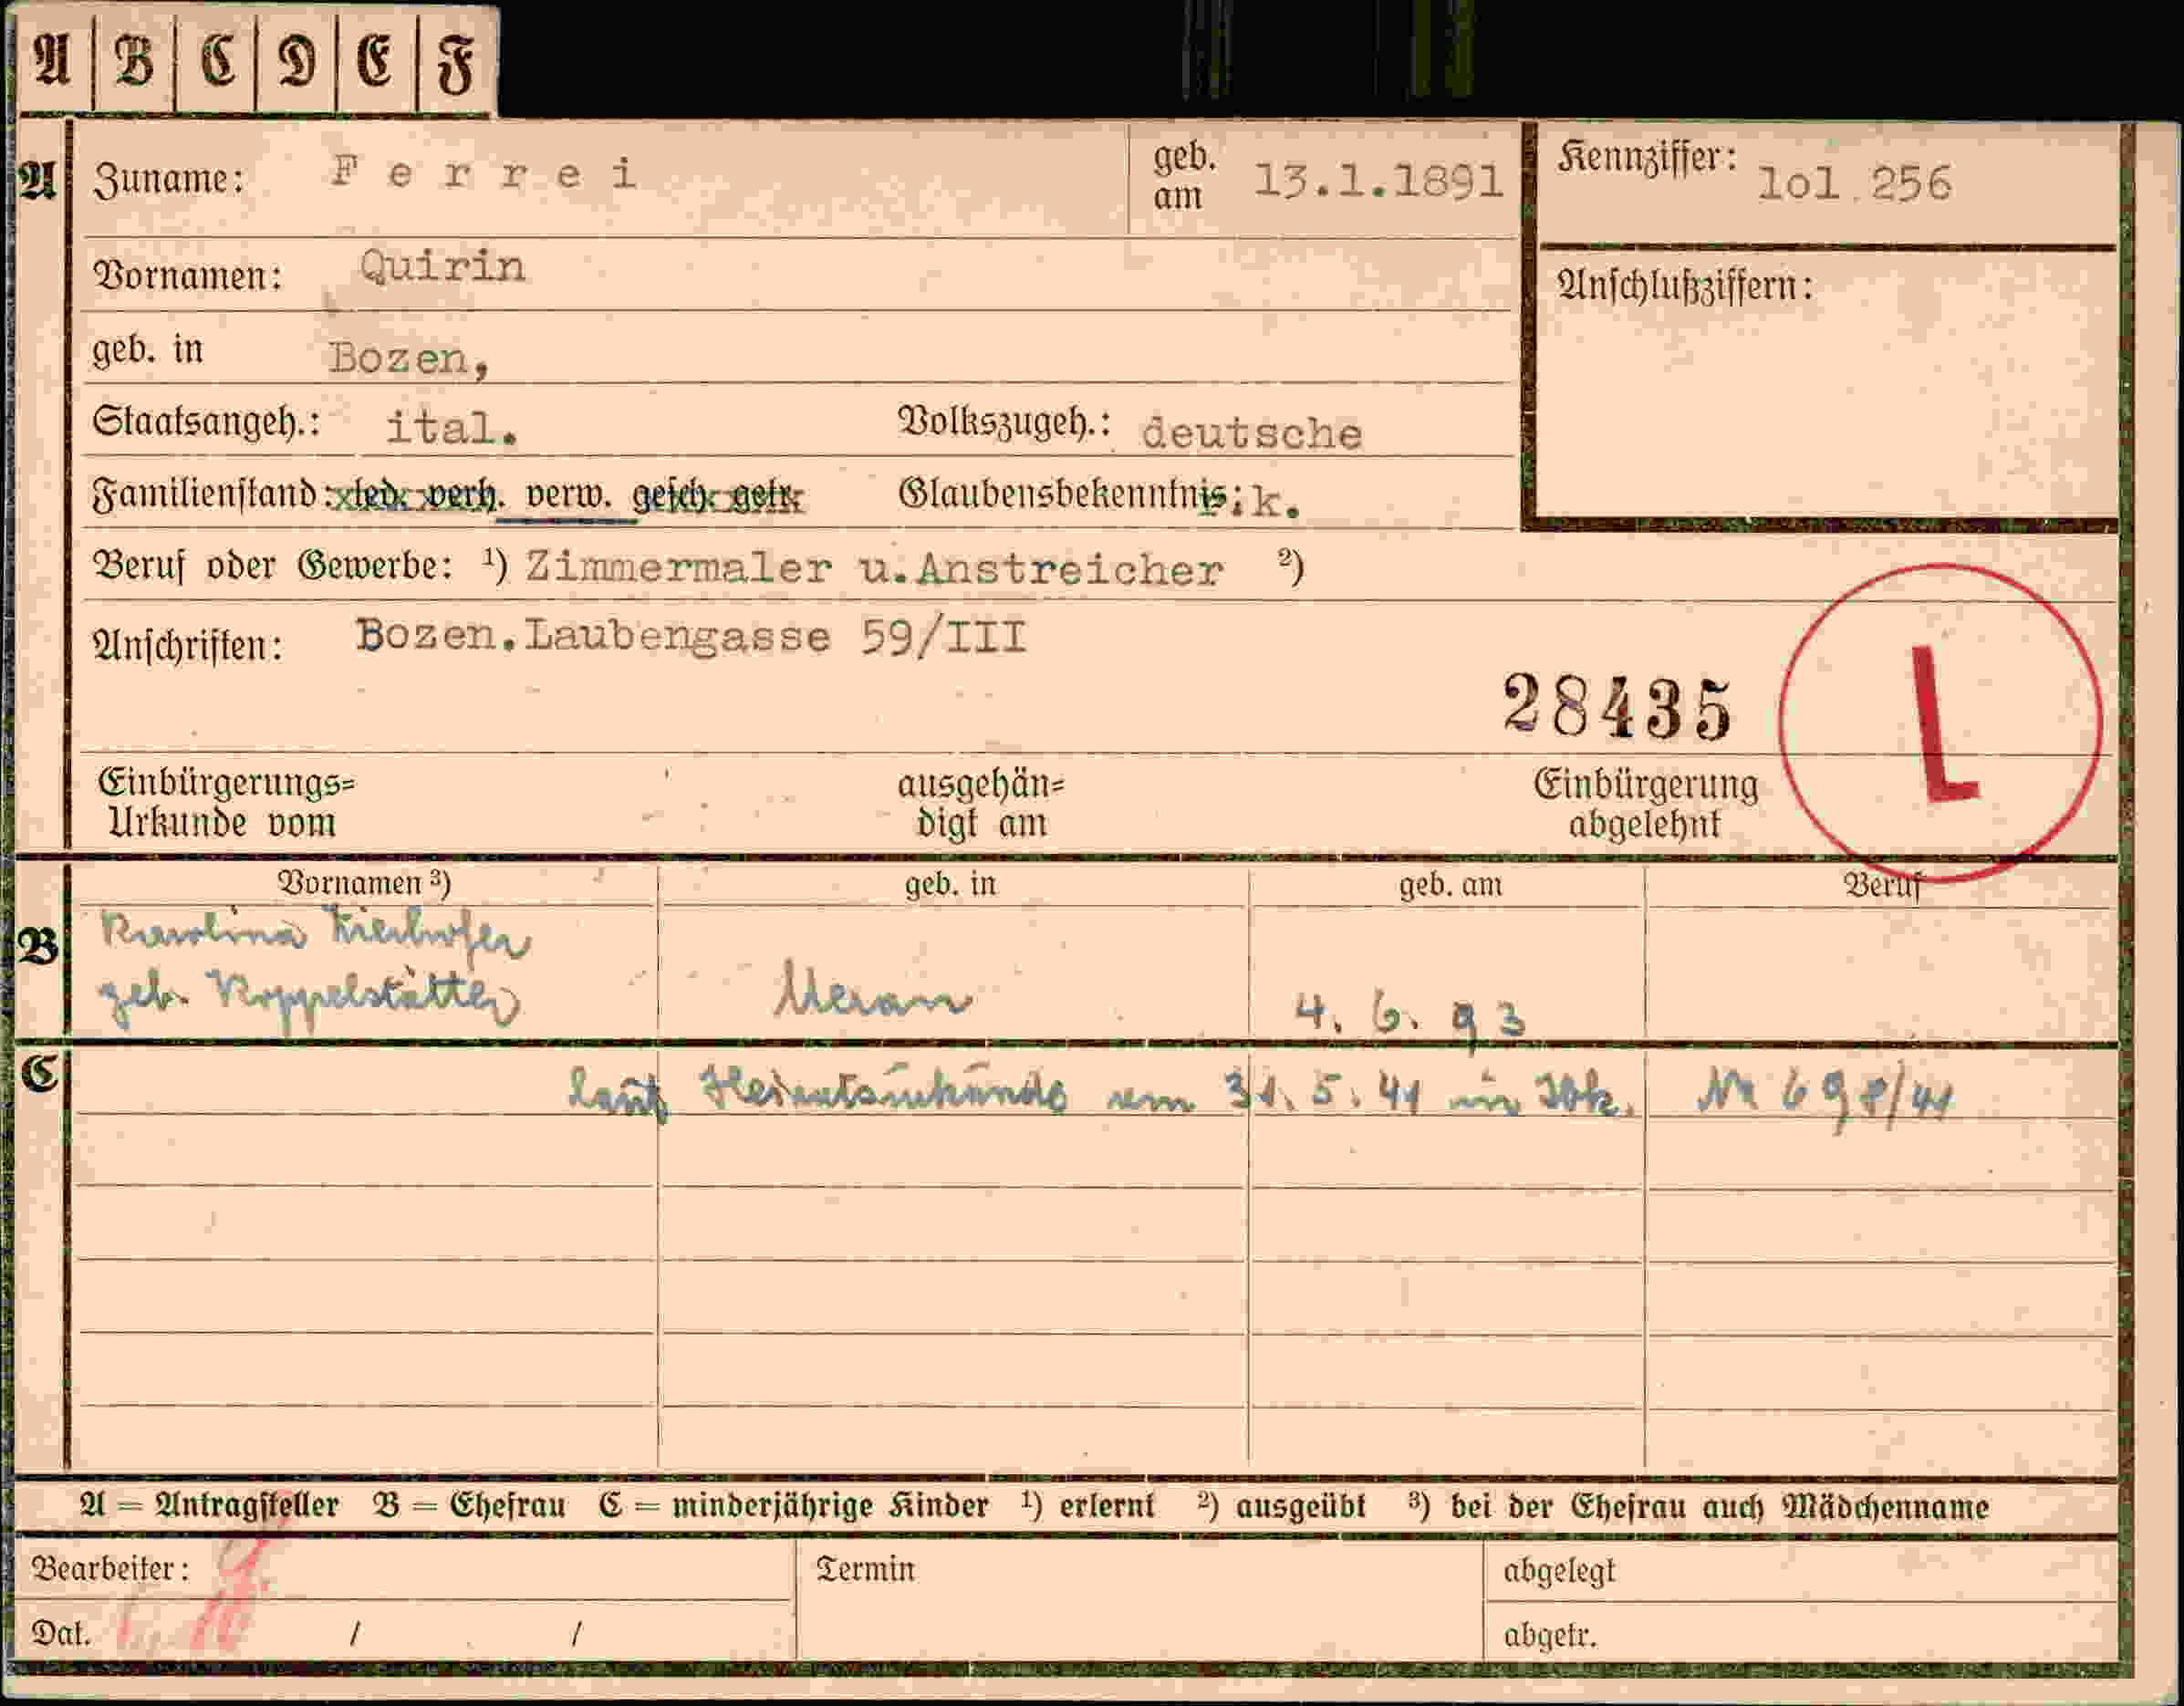 A B C D E F
A Zuname: Ferrei geb. am 13.1.1891 Kennziffer: lol.256
Vornamen: Quirin Anschlußziffern:
geb. in Bozen,
Staatsangeh.: ital. Volkszugeh.: deutsche
Familienstand: led. verh. verw. gesch. getr. Glaubensbekenntnis: k.
Beruf oder Gewerbe: ¹) Zimmermaler u.Anstreicher ²)
Anschriften: Bozen.Laubengasse 59/III
28435 L
Einbürgerungs= ausgehän= Einbürgerung
Urkunde vom digt am abgelehnt
Vornamen ³) geb. in geb. am Beruf
B Karolina
geb. Koppelstätter Meran 4. 6. 93
C laut Heiratsurkunde vom 31. 5. 41 in Ibk. Nr 698/41
A = Antragsteller B = Ehefrau C = minderjährige Kinder ¹) erlernt ²) ausgeübt ³) bei der Ehefrau auch Mädchenname
Bearbeiter: Termin abgelegt
Dat. / / abgetr.